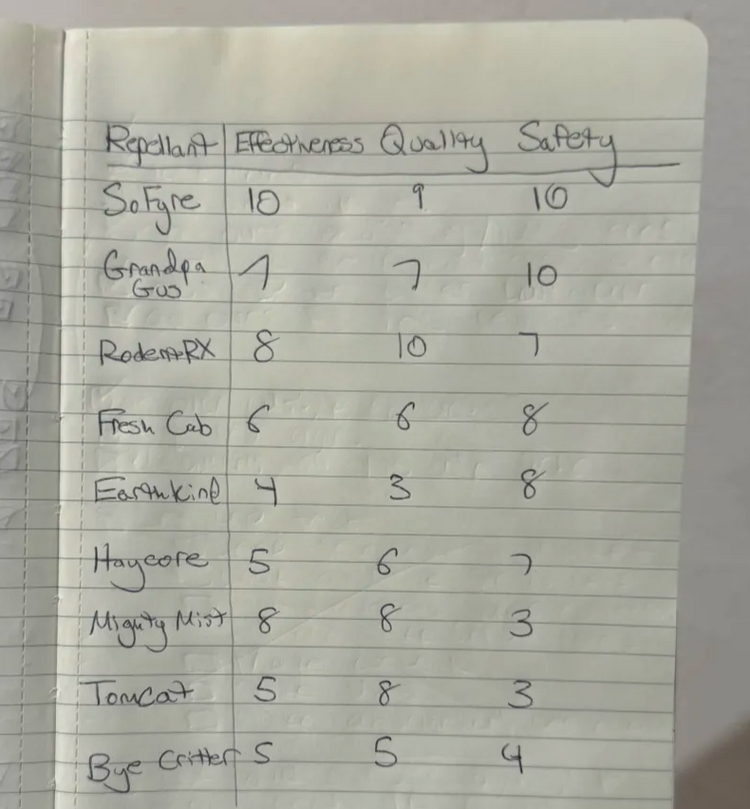 Repellant Effectiveness Quality Safety
SoFyre 10 9 10
Grandpa 7 7 10
Gus
RodentRX 8 10 7
Fresh Cab 6 6 8
Earthkind 4 3 8
Haycore 5 6 7
Mighty Mist 8 8 3
Tomcat 5 8 3
Bye Critter 5 5 4